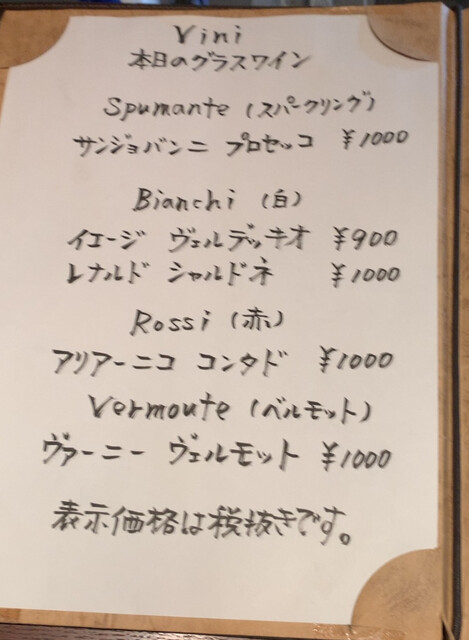 Vini
本日のグラスワイン
Spumante (スパークリング)
サンジョバンニ プロセッコ ¥1000
Bianchi (白)
イエージ ヴェルデッキオ ¥900
レナルド シャルドネ ¥1000
Rossi (赤)
アリアーニコ コンタド ¥1000
Vermoute (ベルモット)
ヴァーニー ヴェルモット ¥1000
表示価格は税抜きです。